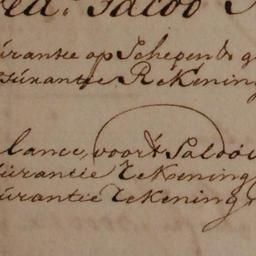 Jacob
urantie op Schepen &
surantie Rekening
lance, voor't Saldo
urantie Rekening
urantie Rekening